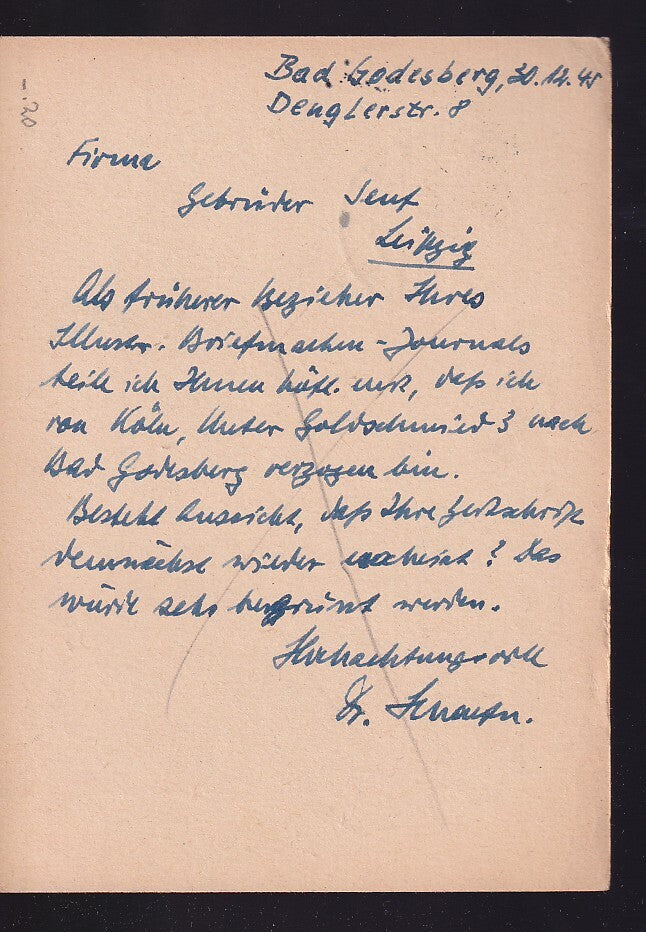 -.20
Bad Godesberg, 30.12.45
Denglerstr. 8
Firma
Gebrüder Senf
Leipzig
Als früherer Bezieher Ihres
Illustr. Briefmarken-Journals
teile ich Ihnen höfl. mit, daß ich
von Köln, Unter Goldschmied 3 nach
Bad Godesberg verzogen bin.
Besteht Aussicht, daß Ihre Zeitschrift
demnächst wieder erscheint? Das
würde sehr begrüßt werden.
Hochachtungsvoll
Dr.